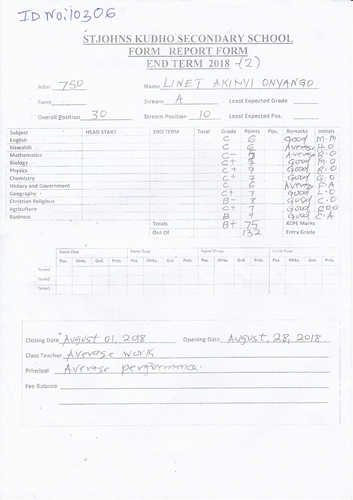 ID No: 10306
STJOHNS KUDHO SECONDARY SCHOOL
FORM REPORT FORM
END TERM 2018 (2)
Adm: 750 Name LINET AKINYI ONYANGO
Form Stream A Least Expected Grade
Overall Position 30 Stream Position 10 Least Expected Pos.
Subject HEAD START END TERM Total Grade Points Pos. Remarks Initials
English C 6 Good M.M
Kiswahili C 6 Average
Mathematics C- Average
Biology C+ 7 Good M.O
Physics C+ 7 Good B.O
Chemistry C+ 7 Good
History and Government C 6 Average F.A
Geography C+ 7 Good L.O
Christian Religious B- 8 Good C.O
Agriculture C+ 7 Good
Business B 9 Good C.A
Totals B+ 75 KCPE Marks
Out Of 132 Entry Grade
Form One Form Two Form Three Form Four
Pos. Mrks. Grd. Pnts. Pos. Mrks. Grd. Pnts. Pos. Mrks. Grd. Pnts. Pos. Mrks. Grd. Pnts.
Term1
Term2
Term3
Closing Date August 01, 2018 Opening Date August, 28, 2018
Class Teacher Average work
Principal Average performance.
Fee Balance